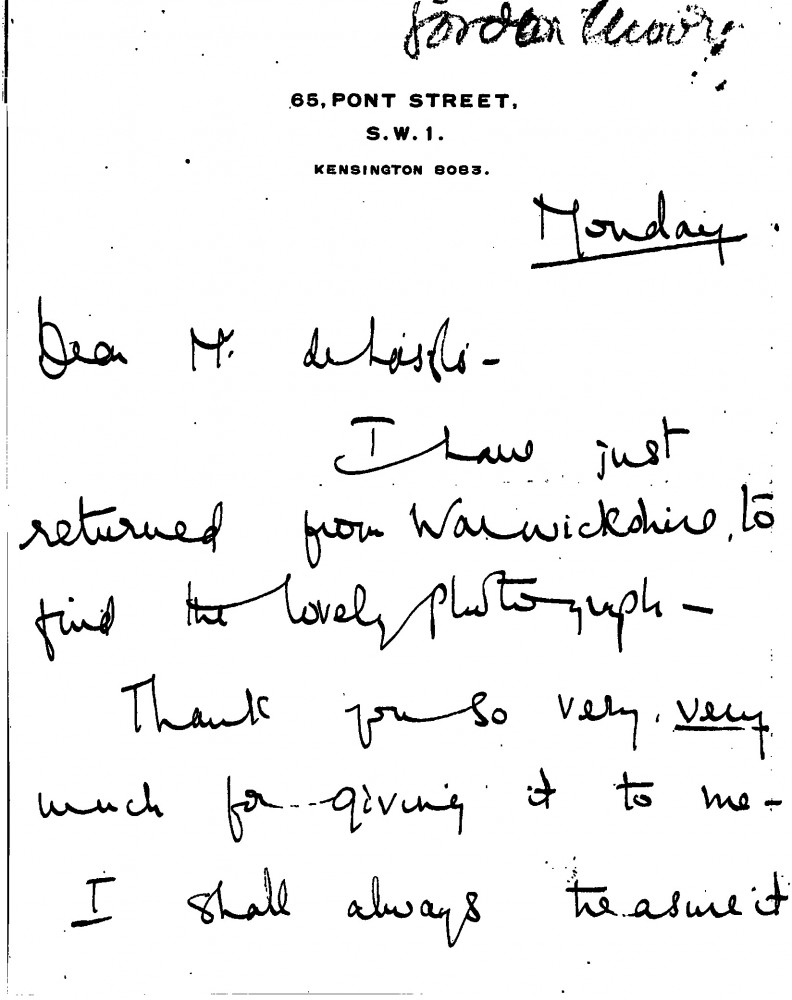 Gordon Moore
65, PONT STREET,
S.W.1.
KENSINGTON 8083.
Monday
Dear Mr. de László -
I have just
returned from Warwickshire, to
find the lovely photograph -
Thank you so very, very
much for giving it to me -
I shall always treasure it